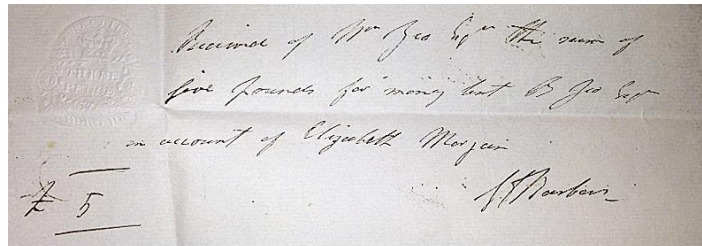 THREE
PENCE
Received of Wm Geo Esqre the sum of
five pounds for money lent B Geo Esqr
on account of Elizabeth Morgan
£ 5